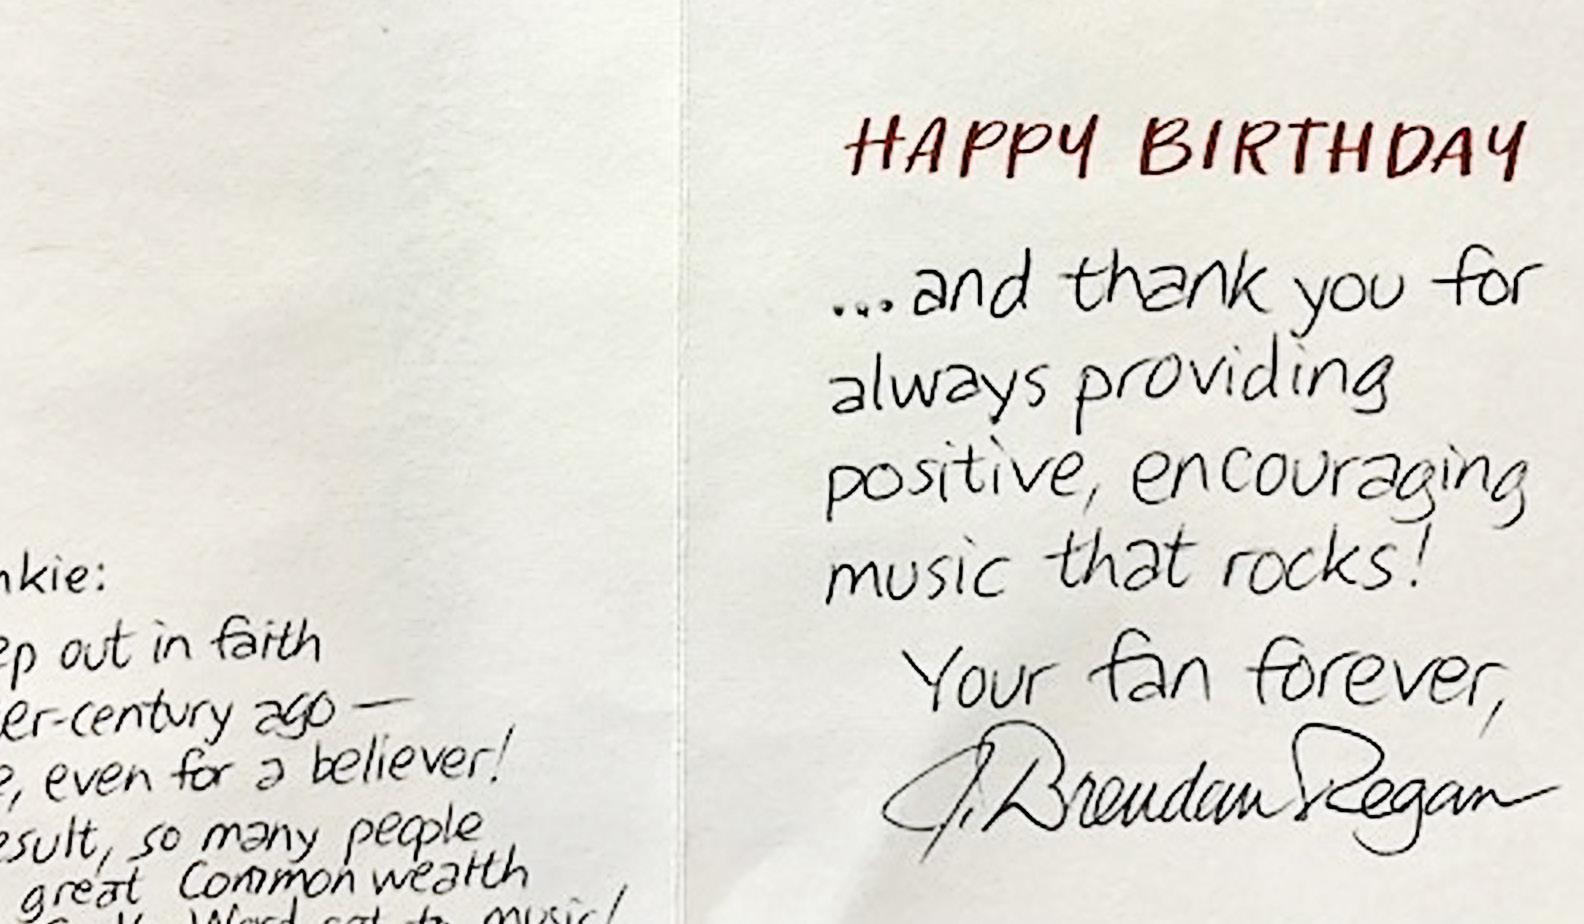 nkie:
ep out in faith
er-century ago —
e, even for a believer!
esult, so many people
great Commonwealth
Word set to music!
HAPPY BIRTHDAY
...and thank you for
always providing
positive, encouraging
music that rocks!
Your fan forever,
J. Brendan Regan